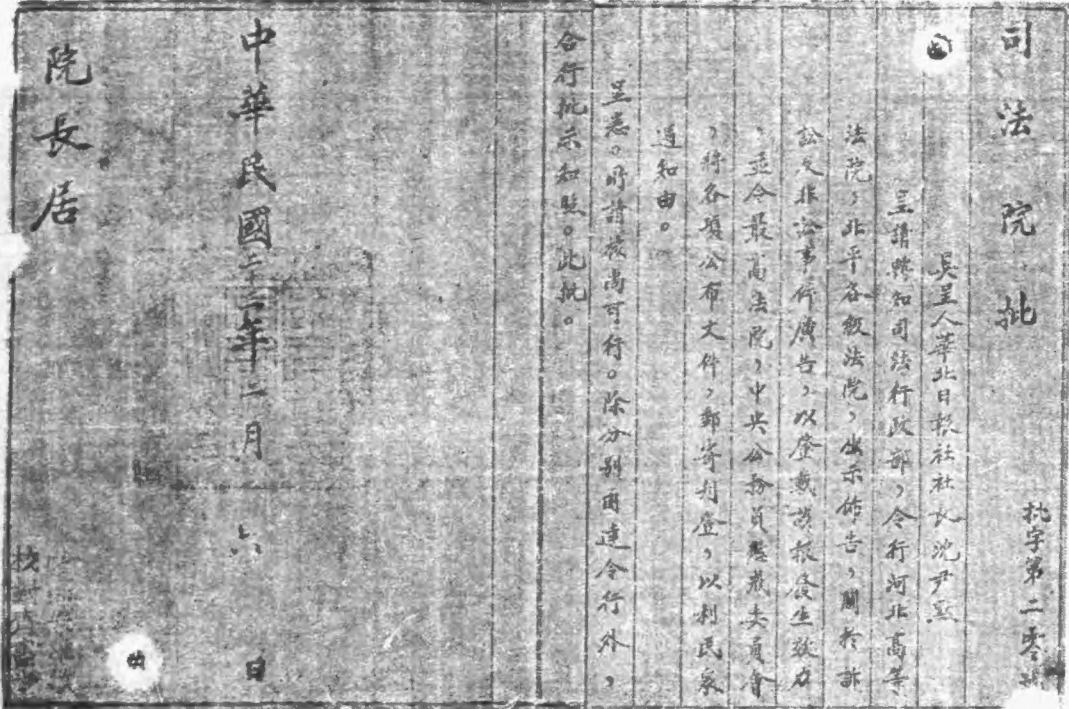 司法院批
批字第二零號
具呈人華北日報社社長沈尹默
呈請轉知司法行政部,令行河北高等
法院,北平各級法院,出示佈告,關於訴
訟及非訟事件廣告,以登載該報發生效力
,並令最高法院,中央公務員懲戒委員會
,將各項公布文件,郵寄刋登,以利民衆
通知由。
呈悉。所請核尚可行。除分別函達令行外,
合行批示知照。此批。
中華民國二十二年二月六日
院長居
校對